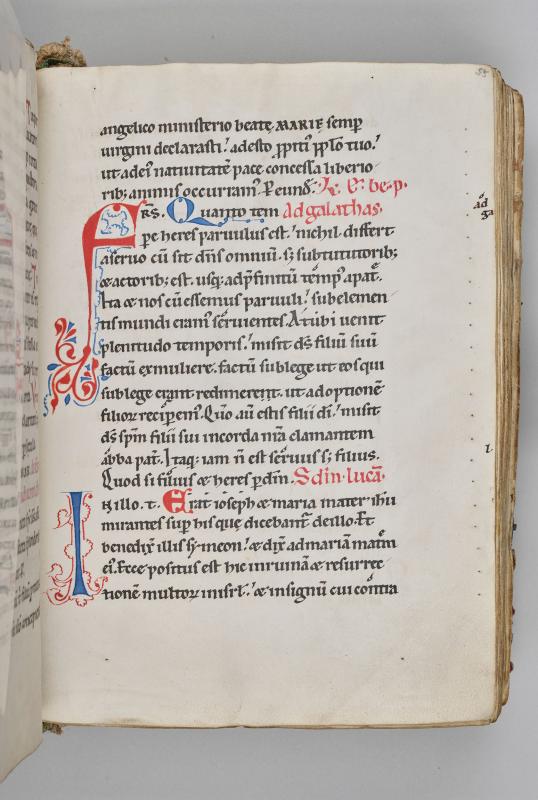 angelico ministerio beatę MARIE semp
uirgini declarasti! adesto ppiti' pplo tuo!
ut adeius natiuitatē pace concessa liberio
rib; animis occurram'. P eund.
FRS. Quanto tem Ad galathas.
pore heres paruulus est! nichil differt
aseruo cū sit dn̄s omniū. s; subtutitorib;
& actorib; est. usq; adp̄finitū tēmp' apat̄.
Ita & nos cū essemus paruuli! subelemen
tis mundi eram' seruientes. At ubi uenit
plenitudo temporis! misit ds̄ filiū suū
factū exmuliere. factū sublege ut eos qui
sublege erant redimeret. ut adoptionē
filior recipem'. Qm̄ aū estis filii di! misit
ds̄ spm̄ filii sui incorda nr̄a clamantem
abba pat̄. Itaq; iam n̄ est seruus s; filius.
Quod si filius & heres p dm̄. Sc̄dm. lucā.
IN illo. t. Erat ioseph & maria mater ihu
mirantes sup his quę dicebant̄ deillo. Et
benedix̄ illis symeon! & dix̄ admariā matrē
ei'. Ecce positus est hic inruinā & resurrec
tionē multor inisrl! & insignū cui contra
ad
ga